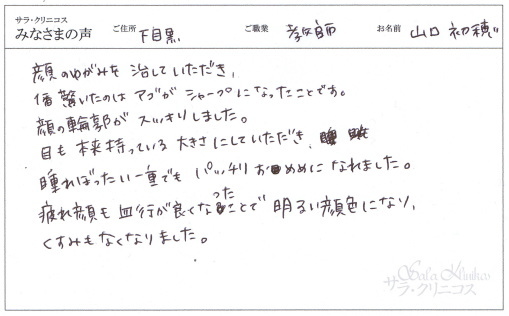 サラ・クリニコス
みなさまの声 ご住所 下目黒 ご職業 教師 お名前 山口 初穂
顔のゆがみを 治していただき、
1番 驚いたのは アゴが シャープになったことです。
顔の輪郭が スッキリしました。
目も 本来持っている 大きさにしていただき、
腫れぼったい一重でも パッチリ おめめに なれました。
疲れ顔も 血行が良くなったことで 明るい顔色になり、
くすみもなくなりました。
サラ・クリニコス